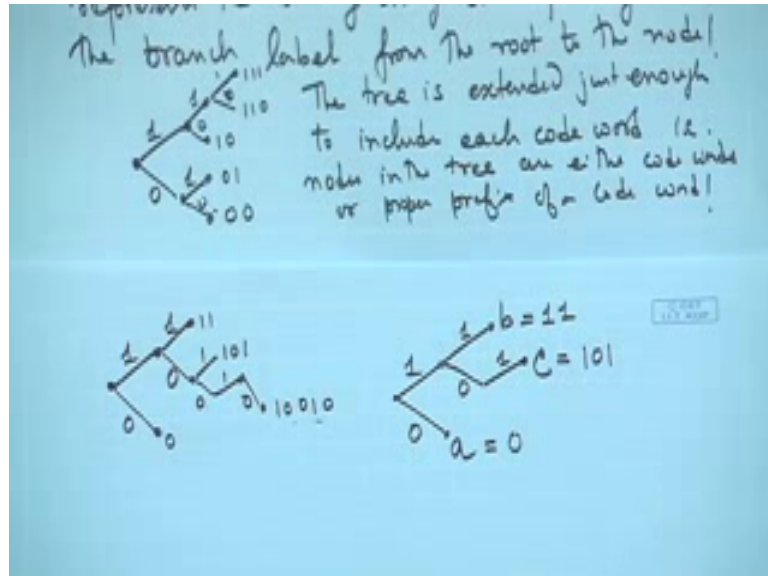 The branch label from The root to The node!
The tree is extended just enough
to include each code word ie.
nodes in the tree are either code words
or proper prefix of a code word!
1 1 111
0 110
0 10
0 1 01
0 00
1 1 11
0 1 101
0 1 0 10010
0 0
1 1 b = 11
0 1 C = 101
0 a = 0